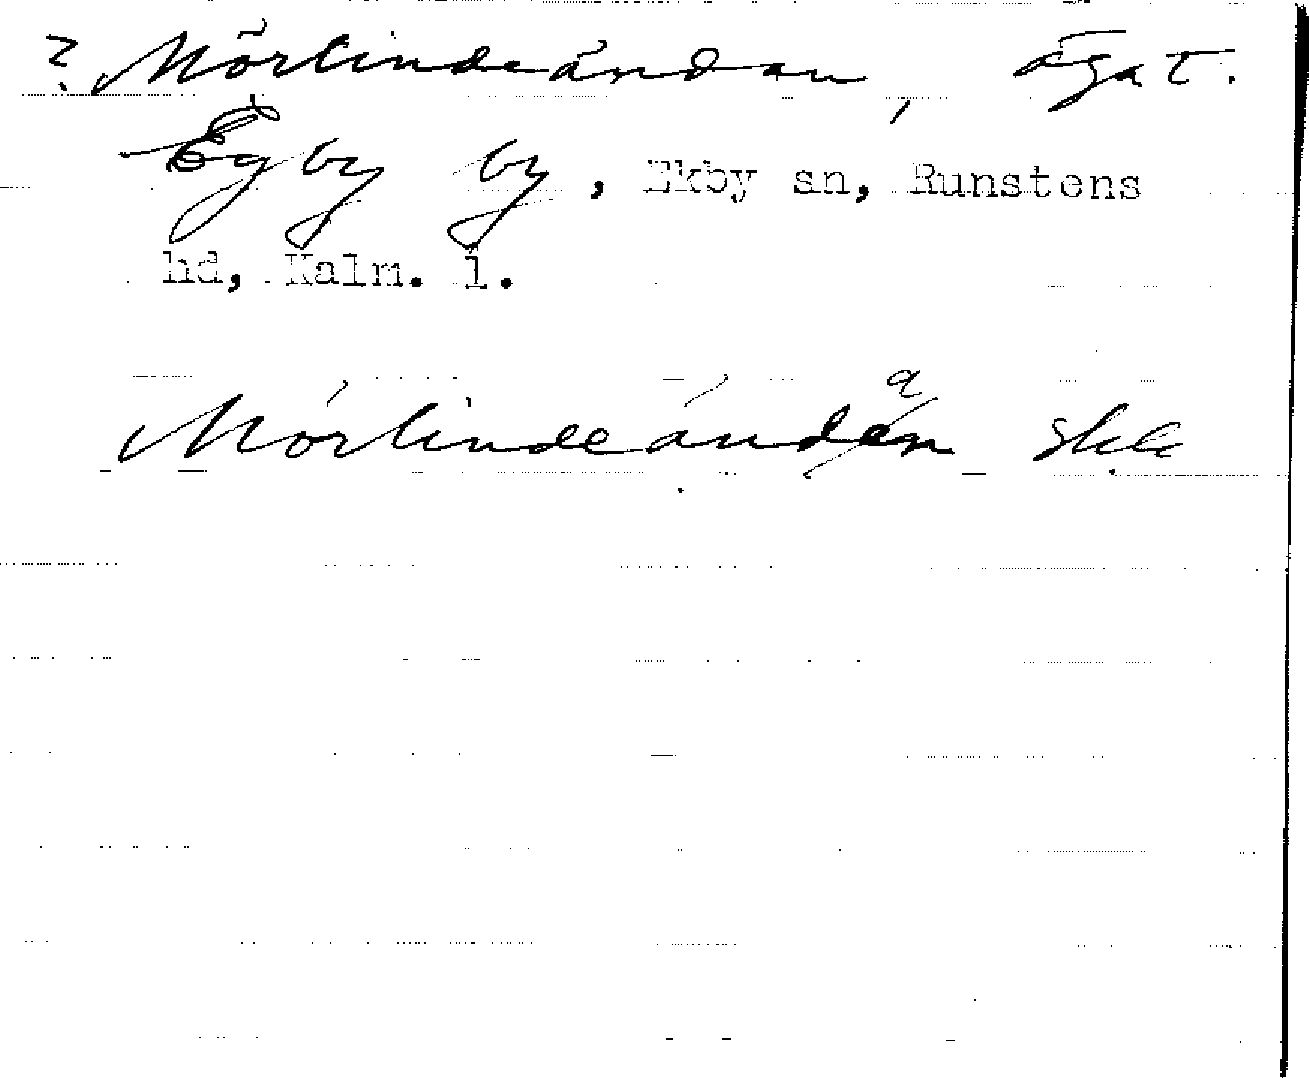 ? Mörlindeändan, ägat.
Egby by, Ekby sn, Runstens
hd, Kalm. l.
Mörlindeänden skl
a